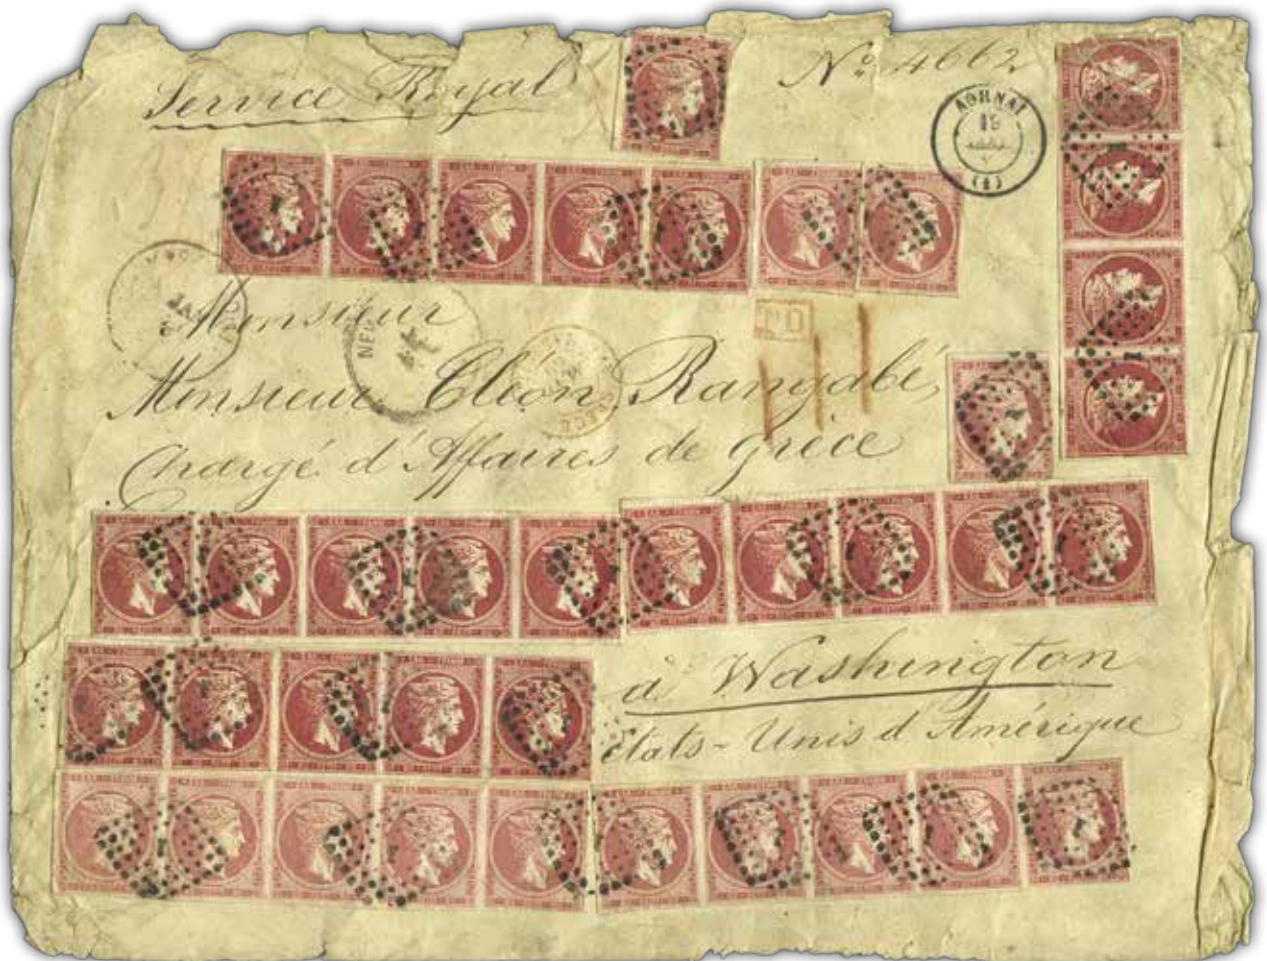 Service Royal
Nº 4662
ΑΘΗΝΑΙ
19
(1)
Monsieur
NEW
PD
Monsieur Cléon Rangabé,
Chargé d'Affaires de Grèce
à Washington
États-Unis d'Amérique